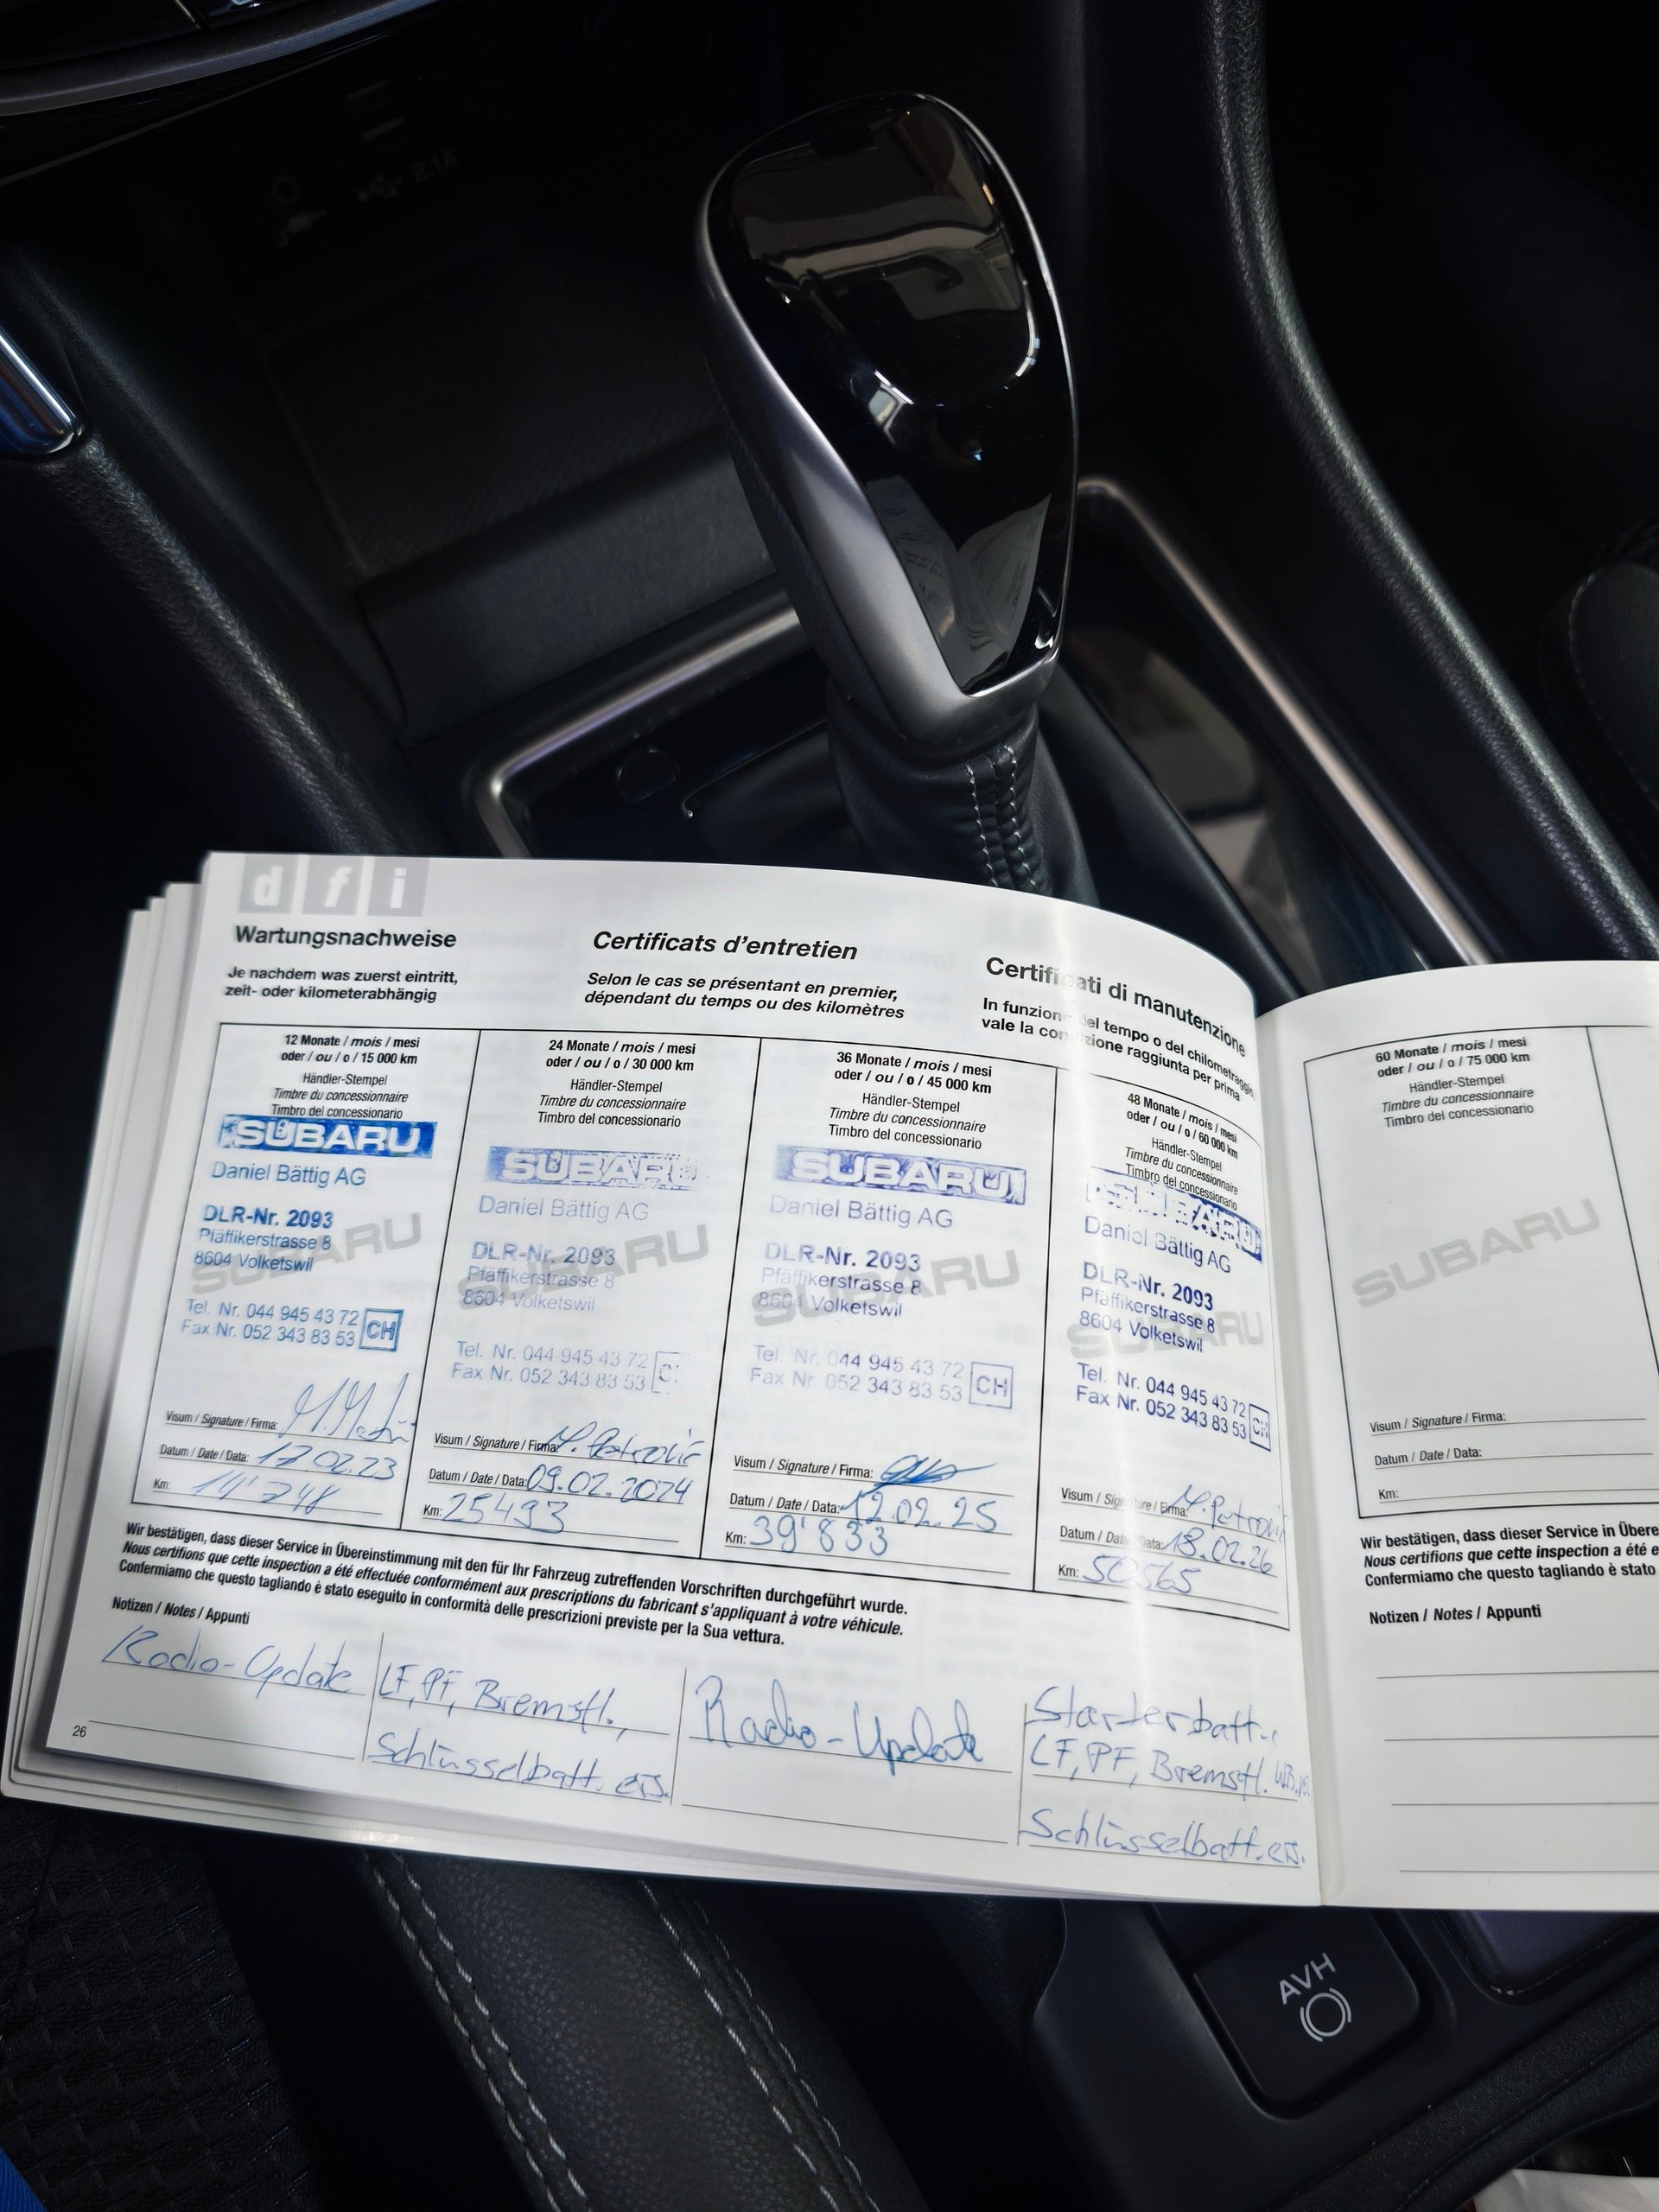 2.1A
d f i
Wartungsnachweise
Je nachdem was zuerst eintritt,
zeit- oder kilometerabhängig
Certificats d'entretien
Selon le cas se présentant en premier,
dépendant du temps ou des kilomètres
Certificati di manutenzione
In funzione del tempo o del chilometraggio,
vale la condizione raggiunta per prima
12 Monate / mois / mesi
oder / ou / o / 15 000 km
Händler-Stempel
Timbre du concessionnaire
Timbro del concessionario
SUBARU
Daniel Bättig AG
DLR-Nr. 2093
Pfäffikerstrasse 8
8604 Volketswil
SUBARU
Tel. Nr. 044 945 43 72
Fax Nr. 052 343 83 53
CH
Visum / Signature / Firma:
Datum / Date / Data: 17 02.23
Km: 14'748
24 Monate / mois / mesi
oder / ou / o / 30 000 km
Händler-Stempel
Timbre du concessionnaire
Timbro del concessionario
SUBARU
Daniel Bättig AG
DLR-Nr. 2093
Pfäffikerstrasse 8
8604 Volketswil
SUBARU
Tel. Nr. 044 945 43 72
Fax Nr. 052 343 83 53
Visum / Signature / Firma: M. Petrović
Datum / Date / Data: 09.02.2024
Km: 25493
36 Monate / mois / mesi
oder / ou / o / 45 000 km
Händler-Stempel
Timbre du concessionnaire
Timbro del concessionario
SUBARU
Daniel Bättig AG
DLR-Nr. 2093
Pfäffikerstrasse 8
8604 Volketswil
SUBARU
Tel. Nr. 044 945 43 72
Fax Nr. 052 343 83 53
CH
Visum / Signature / Firma:
Datum / Date / Data: 12.02.25
Km: 39'833
48 Monate / mois / mesi
oder / ou / o / 60 000 km
Händler-Stempel
Timbre du concessionnaire
Timbro del concessionario
SUBARU
Daniel Bättig AG
DLR-Nr. 2093
Pfäffikerstrasse 8
8604 Volketswil
SUBARU
Tel. Nr. 044 945 43 72
Fax Nr. 052 343 83 53
CH
Visum / Signature / Firma: M. Petrović
Datum / Date / Data: 18.02.26
Km: 50565
Wir bestätigen, dass dieser Service in Übereinstimmung mit den für Ihr Fahrzeug zutreffenden Vorschriften durchgeführt wurde.
Nous certifions que cette inspection a été effectuée conformément aux prescriptions du fabricant s'appliquant à votre véhicule.
Confermiamo che questo tagliando è stato eseguito in conformità delle prescrizioni previste per la Sua vettura.
Notizen / Notes / Appunti
Radio-Update
LF, PF, Bremsfl.,
Schlüsselbatt. ers.
Radio-Update
Starterbatt.,
LF, PF, Bremsfl.
Schlüsselbatt. ers.
26
60 Monate / mois / mesi
oder / ou / o / 75 000 km
Händler-Stempel
Timbre du concessionnaire
Timbro del concessionario
SUBARU
Visum / Signature / Firma:
Datum / Date / Data:
Km:
Wir bestätigen, dass dieser Service in Übere
Nous certifions que cette inspection a été e
Confermiamo che questo tagliando è stato
Notizen / Notes / Appunti
AVH